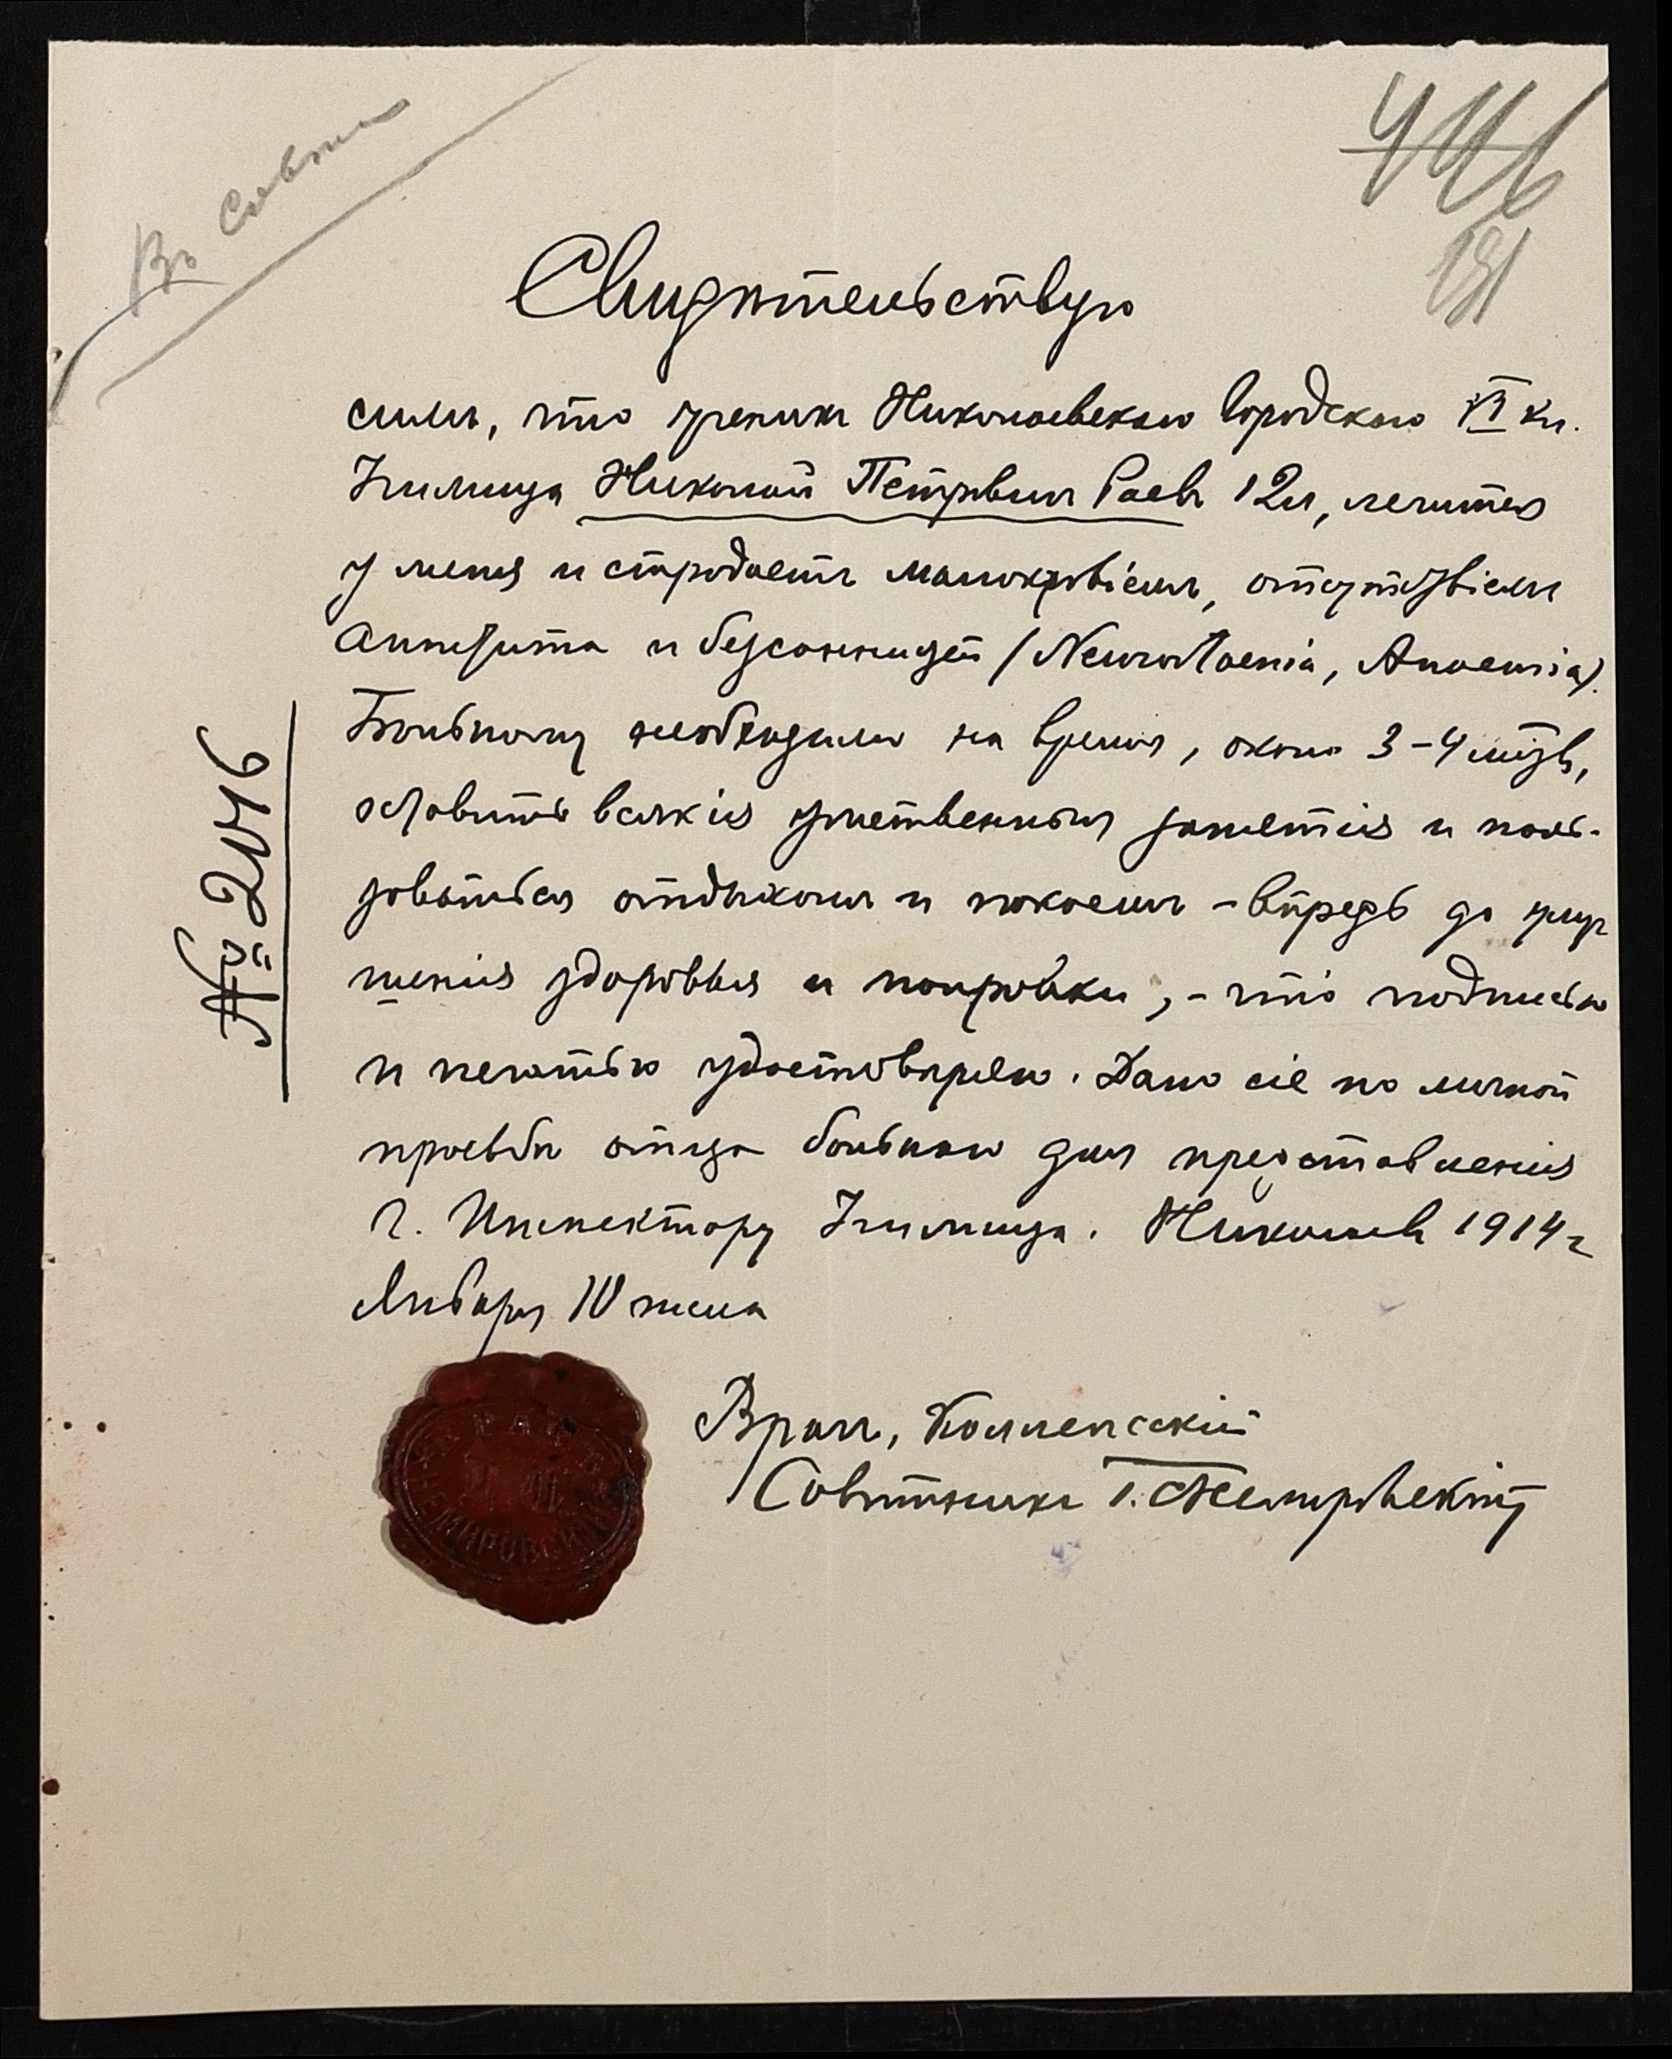 Въ Совѣтъ
446
191
Свидѣтельствую
симъ, что ученикъ Николаевскаго Городского VI кл.
Училища Николай Петровичъ Раевъ 12 л, лечится
у меня и страдаетъ малокровіемъ, отсутствіемъ
аппетита и безсонницей (Neurasthenia, Anaemia).
Больному необходимо на время, около 3-4 мѣс,
оставить всякія умственныя занятія и поль-
зоваться отдыхомъ и покоемъ - впредь до улуч
шенія здоровья и поправки, - что подписью
и печатью удостовѣряю. Дано сіе по личной
просьбѣ отца больного для представленія
г. Инспектору Училища. Николаевъ 1914 г
Января 10 числа
№ 2046
Врачъ, Коллежскій
Совѣтникъ І. Жемировскій
ВРАЧЪ
МИРОВСКІЙ